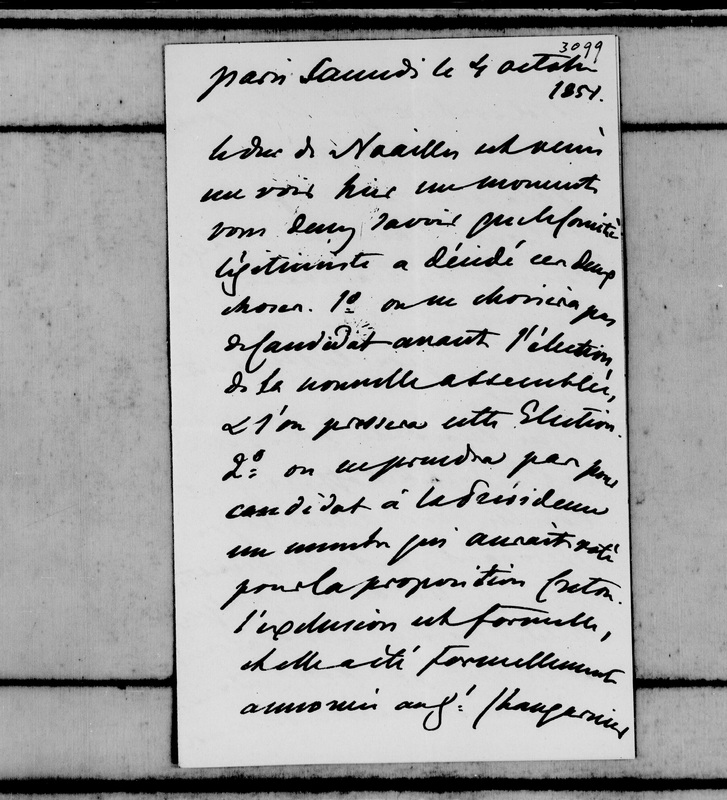 3099
paris Samedi le 4 octobre
1851.
le duc de Noailles est venu
me voir hier un moment
vous devez savoir que le Comité
légitimiste a décidé ces deux
choses. 1º on ne choisira pas
de Candidat avant l'élection
de la nouvelle assemblée,
& l'on pressera cette Election.
2º on ne prendra pas pour
candidat à la Présidence
un membre qui aurait voté
pour la proposition Creton.
l'exclusion est formelle,
et elle a été formellement
annoncée au gl Changarnier